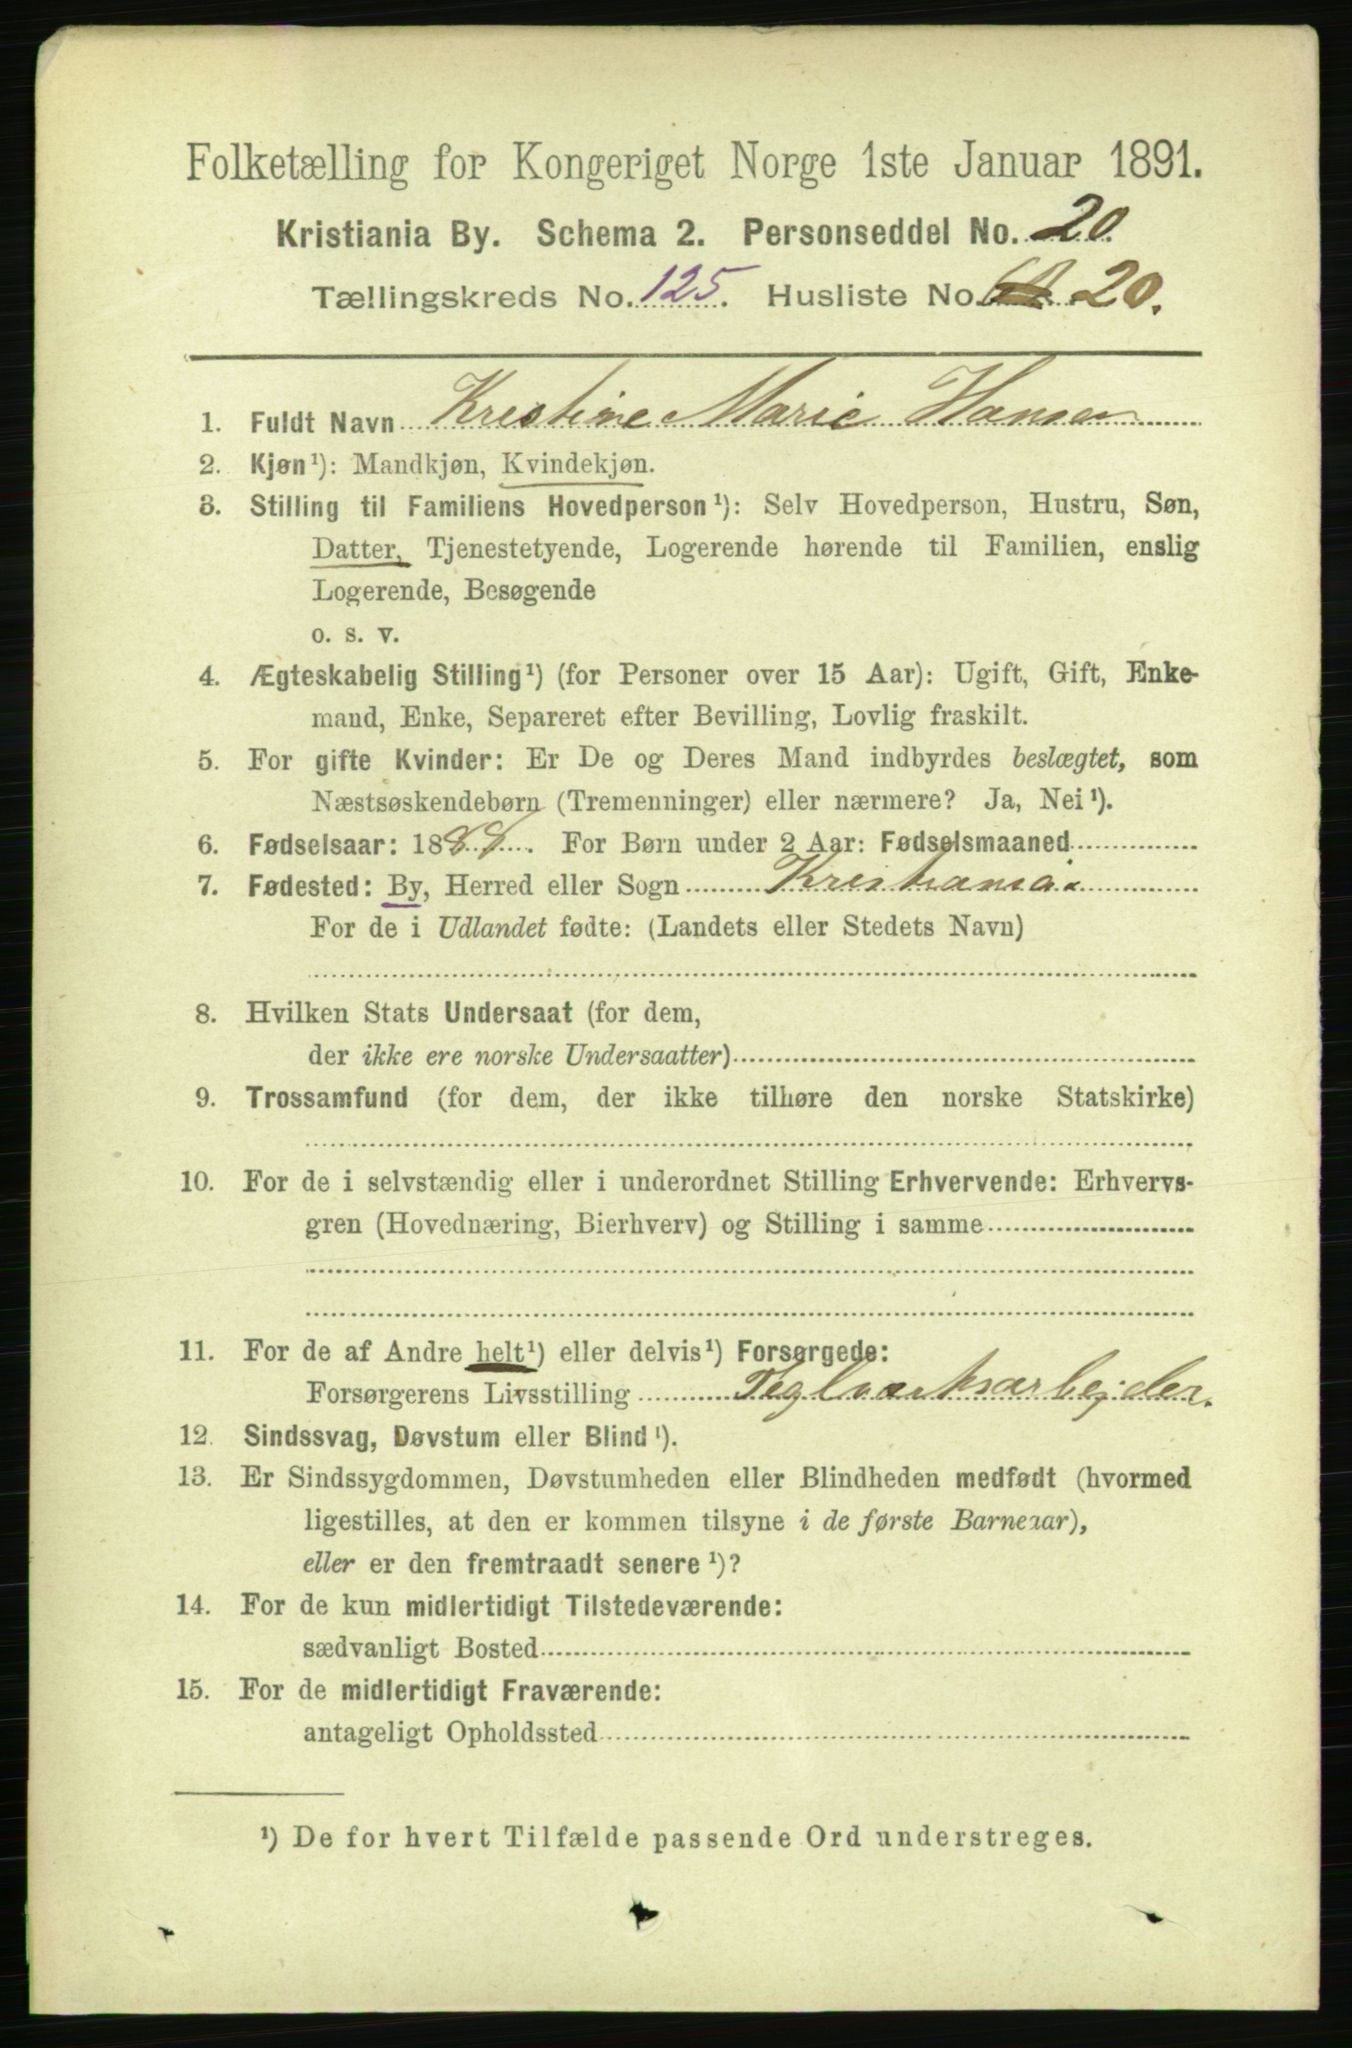 Folketælling for Kongeriget Norge 1ste Januar 1891.
Kristiania By. Schema 2. Personseddel No. 20
Tællingskreds No. 125. Husliste No. 20.
1. Fuldt Navn Kristine Marie Hansen
2. Kjøn¹): Mandkjøn, Kvindekjøn.
3. Stilling til Familiens Hovedperson¹): Selv Hovedperson, Hustru, Søn,
Datter, Tjenestetyende, Logerende hørende til Familien, enslig
Logerende, Besøgende
o. s. v.
4. Ægteskabelig Stilling¹) (for Personer over 15 Aar): Ugift, Gift, Enke-
mand, Enke, Separeret efter Bevilling, Lovlig fraskilt.
5. For gifte Kvinder: Er De og Deres Mand indbyrdes beslægtet, som
Næstsøskendebørn (Tremenninger) eller nærmere? Ja, Nei¹).
6. Fødselsaar: 1888. For Børn under 2 Aar: Fødselsmaaned
7. Fødested: By, Herred eller Sogn Kristiania
For de i Udlandet fødte: (Landets eller Stedets Navn)
8. Hvilken Stats Undersaat (for dem,
der ikke ere norske Undersaatter)
9. Trossamfund (for dem, der ikke tilhøre den norske Statskirke)
10. For de i selvstændig eller i underordnet Stilling Erhvervende: Erhvervs-
gren (Hovednæring, Bierhverv) og Stilling i samme
11. For de af Andre helt¹) eller delvis¹) Forsørgede:
Forsørgerens Livsstilling Teglværksarbejder.
12. Sindssvag, Døvstum eller Blind¹).
13. Er Sindssygdommen, Døvstumheden eller Blindheden medfødt (hvormed
ligestilles, at den er kommen tilsyne i de første Barneaar),
eller er den fremtraadt senere¹)?
14. For de kun midlertidigt Tilstedeværende:
sædvanligt Bosted
15. For de midlertidigt Fraværende:
antageligt Opholdssted
¹) De for hvert Tilfælde passende Ord understreges.